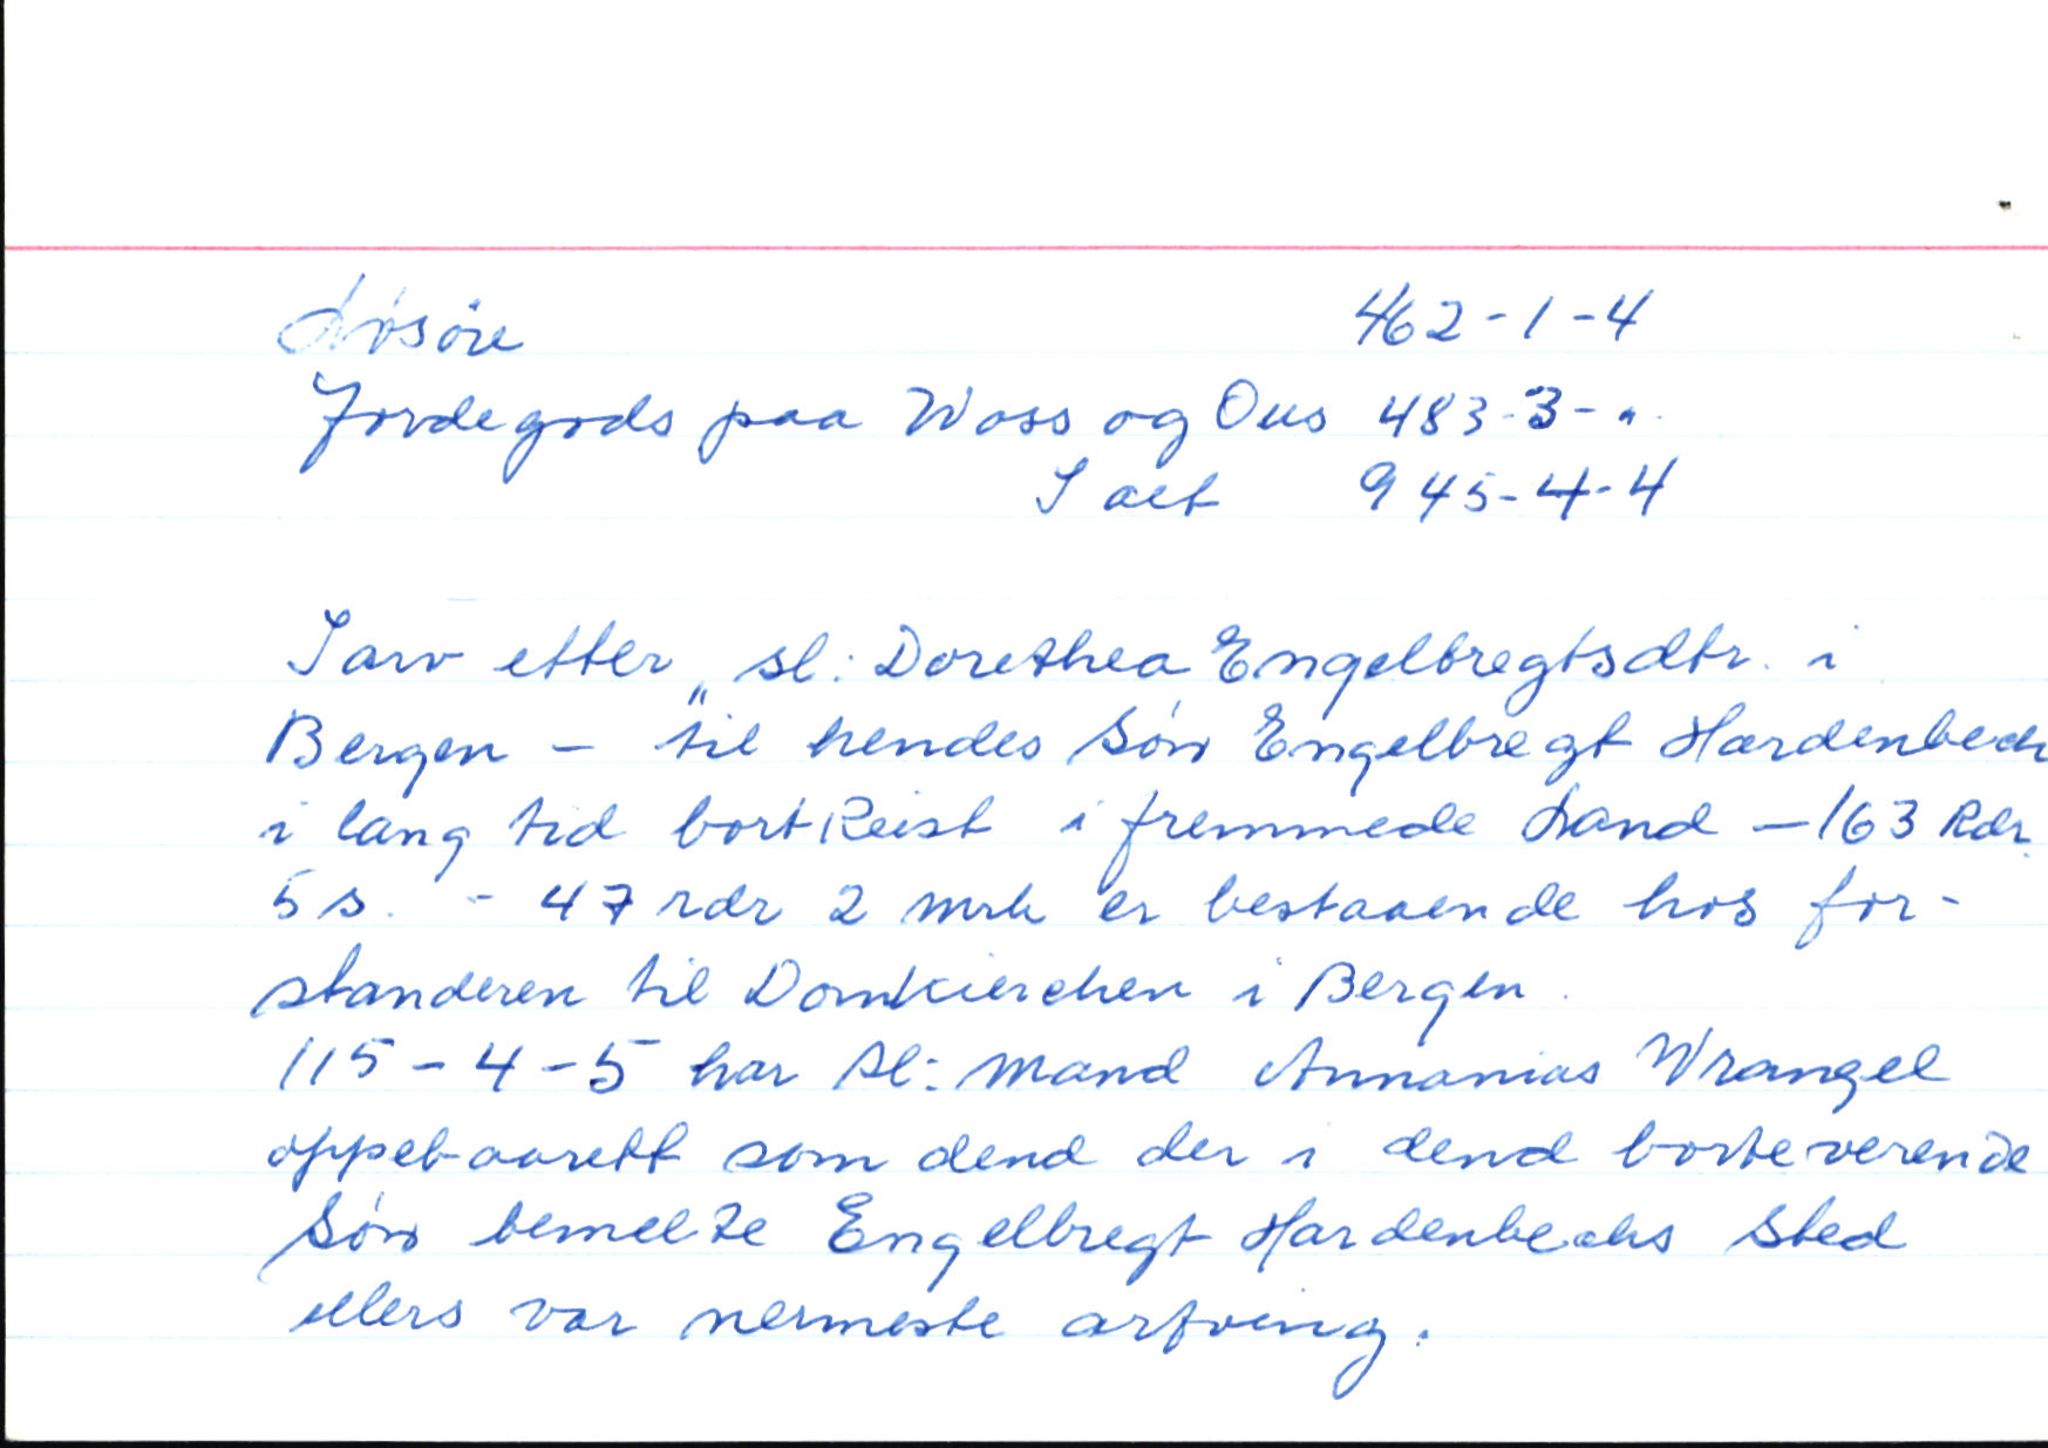 Løsöre 462-1-4
Jordegods paa Woss og Ous 483-3-"
I alt 945-4-4
I arv etter „sl: Dorethea Engelbregtsdtr. i
Bergen - til hendes Søn Engelbregt Hardenbech
i lang tid bortReist i fremmede Land - 163 Rdr
5 s. - 47 rdr 2 mrk er bestaaende hos for-
standeren til Domkierchen i Bergen.
115-4-5 har Sl: Mand Annanias Wrangel
oppebaarett som dend der i dend borteverende
Søn bemelte Engelbregt Hardenbechs Sted
ellers var nermeste arfving.